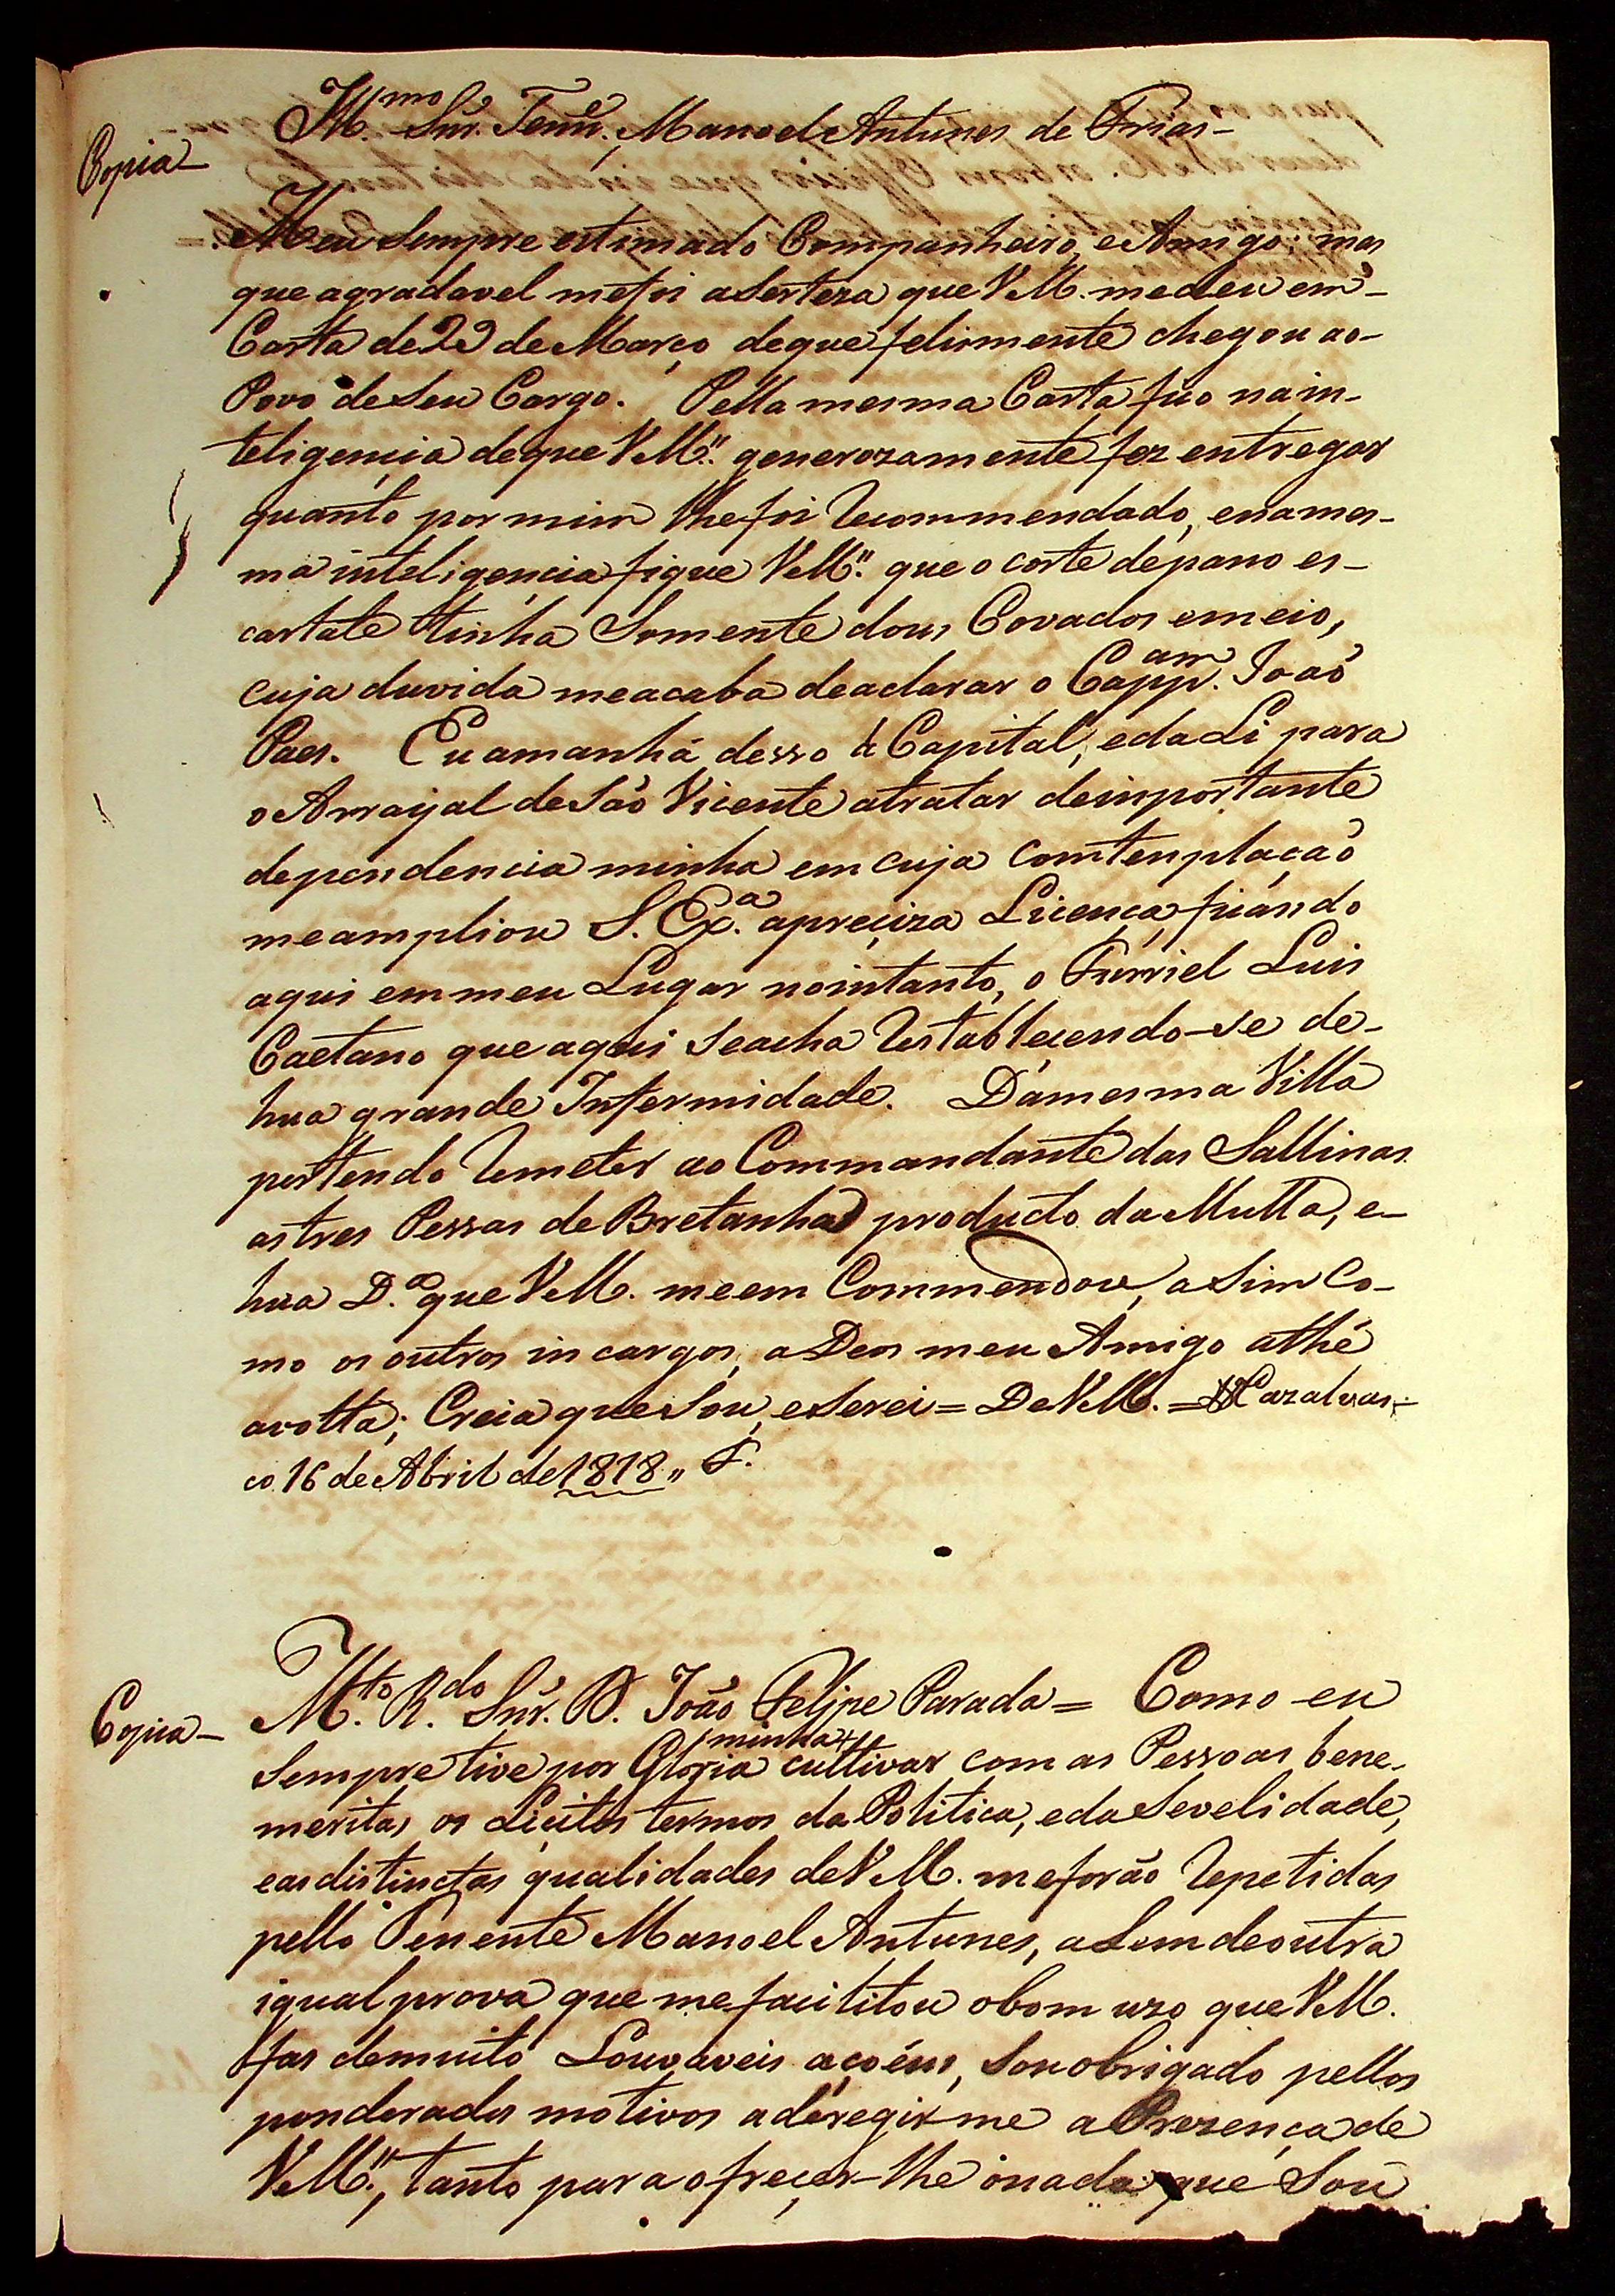 Illmo. Snr. Tene. Manoel Antunes de Frias-
Copia-
Meu sempre estimado Companheiro, e Amigo: mas
que agradavel mefoi aserteza que VM. medeu em-
Carta de 29 de Março, deque felismente chegou ao-
Povo de seu Cargo. Pella mesma Carta fico nain-
teligencia deque VMce. generozamente fez entregar
quanto por mim lhefoi recommendado, enames-
ma inteligencia fique VMce. que o corte depano es-
carlate tinha somente dous Covados emeio,
cuja duvida meacaba deaclarar o Cappam. João
Paes. Eu amanhã desso á Capital, edali para
o Arrayal de São Vicente atratar deinportante
dependencia minha em cuja comtenplação
meampliou S. Exa. apreciza Licença, ficando
aqui emmeu Lugar nointanto, o Furriel Luis
Caetano que aqui seacha restablecendo-se de-
hua grande Infermidade. Damesma Villa
pertendo remeter ao Commandante das Sallinas
astres Pessas de Bretanha producto da Multa, e-
hua Da. que VM. meem Commendou, asim Co-
mo os outros incargos, aDeos meu Amigo athé
avolta; Creia que sou, eserei = DeVM. = Cazalvas-
co 16 de Abril de 1818,, F.
Copia- Mto. Rdo. Snr. D. João Felipe Parada = Como eu
minha
sempre tive por Gloria cultivar com as Pessoas bene-
meritas os Licitos termos da Politica, eda sevelidade,
eas distinctas qualidades deVM. meforão repetidas
pello Tenente Manoel Antunes, alem deoutra
igual prova que me facilitou obom uzo que VM.
fas demuito Louvaveis açoéns, sou obrigado pellos
ponderados motivos aderegirme aPrezença de
VMce., tanto para ofreçer-lhe onada que sou